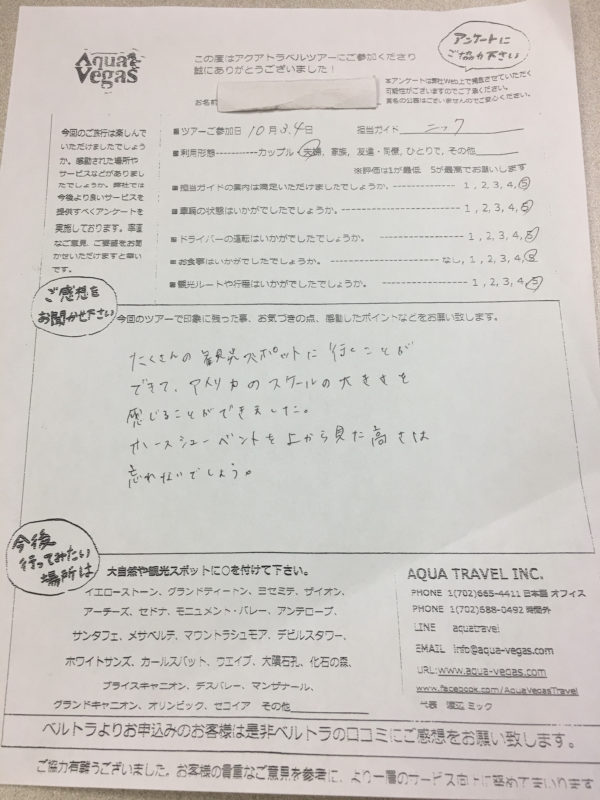 Aqua Vegas
この度はアクアトラベルツアーにご参加くださり
誠にありがとうございました！
アンケートに
ご協力下さい
本アンケートは弊社Web上で掲載させていただく
可能性がございますのでご了承ください。
実名の公表はございませんのでご安心ください。
お名前
今回のご旅行は楽しんで
いただけましたでしょう
か。感動された場所や
サービスなどがありまし
たでしょうか。弊社では
今後より良いサービスを
提供すべくアンケートを
実施しております。率直
なご意見、ご要望をお聞
かせいただけますと幸い
です。
■ツアーご参加日 10月3.4日 担当ガイド ニック
■利用形態-----------カップル、夫婦、家族、友達・同僚、ひとりで、その他
※評価は1が最低 5が最高でお願いします
■担当ガイドの案内は満足いただけましたでしょうか。---------------- 1, 2, 3, 4, 5
■車輌の状態はいかがでしたでしょうか。---------------- 1, 2, 3, 4, 5
■ドライバーの運転はいかがでしたでしょうか。---------------- 1, 2, 3, 4, 5
■お食事はいかがでしたでしょうか。---------------- なし, 1, 2, 3, 4, 5
■観光ルートや行程はいかがでしたでしょうか。---------------- 1, 2, 3, 4, 5
ご感想を
お聞かせ下さい
今回のツアーで印象に残った事、お気づきの点、感動したポイントなどをお願い致します。
たくさんの観光スポットに行くことが
できて、アメリカのスケールの大きさを
感じることができました。
ホースシューベントを上から見た高さは
忘れないでしょう。
今後
行ってみたい
場所は
大自然や観光スポットに○を付けて下さい。
イエローストーン、グランドティートン、ヨセミテ、ザイオン、
アーチーズ、セドナ、モニュメント・バレー、アンテロープ、
サンタフェ、メサベルデ、マウントラシュモア、デビルスタワー、
ホワイトサンズ、カールスバット、ウエイブ、大隕石孔、化石の森、
ブライスキャニオン、デスバレー、マンザナール、
グランドキャニオン、オリンピック、セコイア その他
AQUA TRAVEL INC.
PHONE 1(702)665-4411 日本語 オフィス
PHONE 1(702)588-0492 時間外
LINE aquatravel
EMAIL info@aqua-vegas.com
URL:www.aqua-vegas.com
www.facebook.com/AquaVegasTravel
代表 渡辺 ミック
ベルトラよりお申込みのお客様は是非ベルトラの口コミにご感想をお願い致します。
ご協力有難うございました。お客様の貴重なご意見を参考に、より一層のサービス向上に努めてまいります